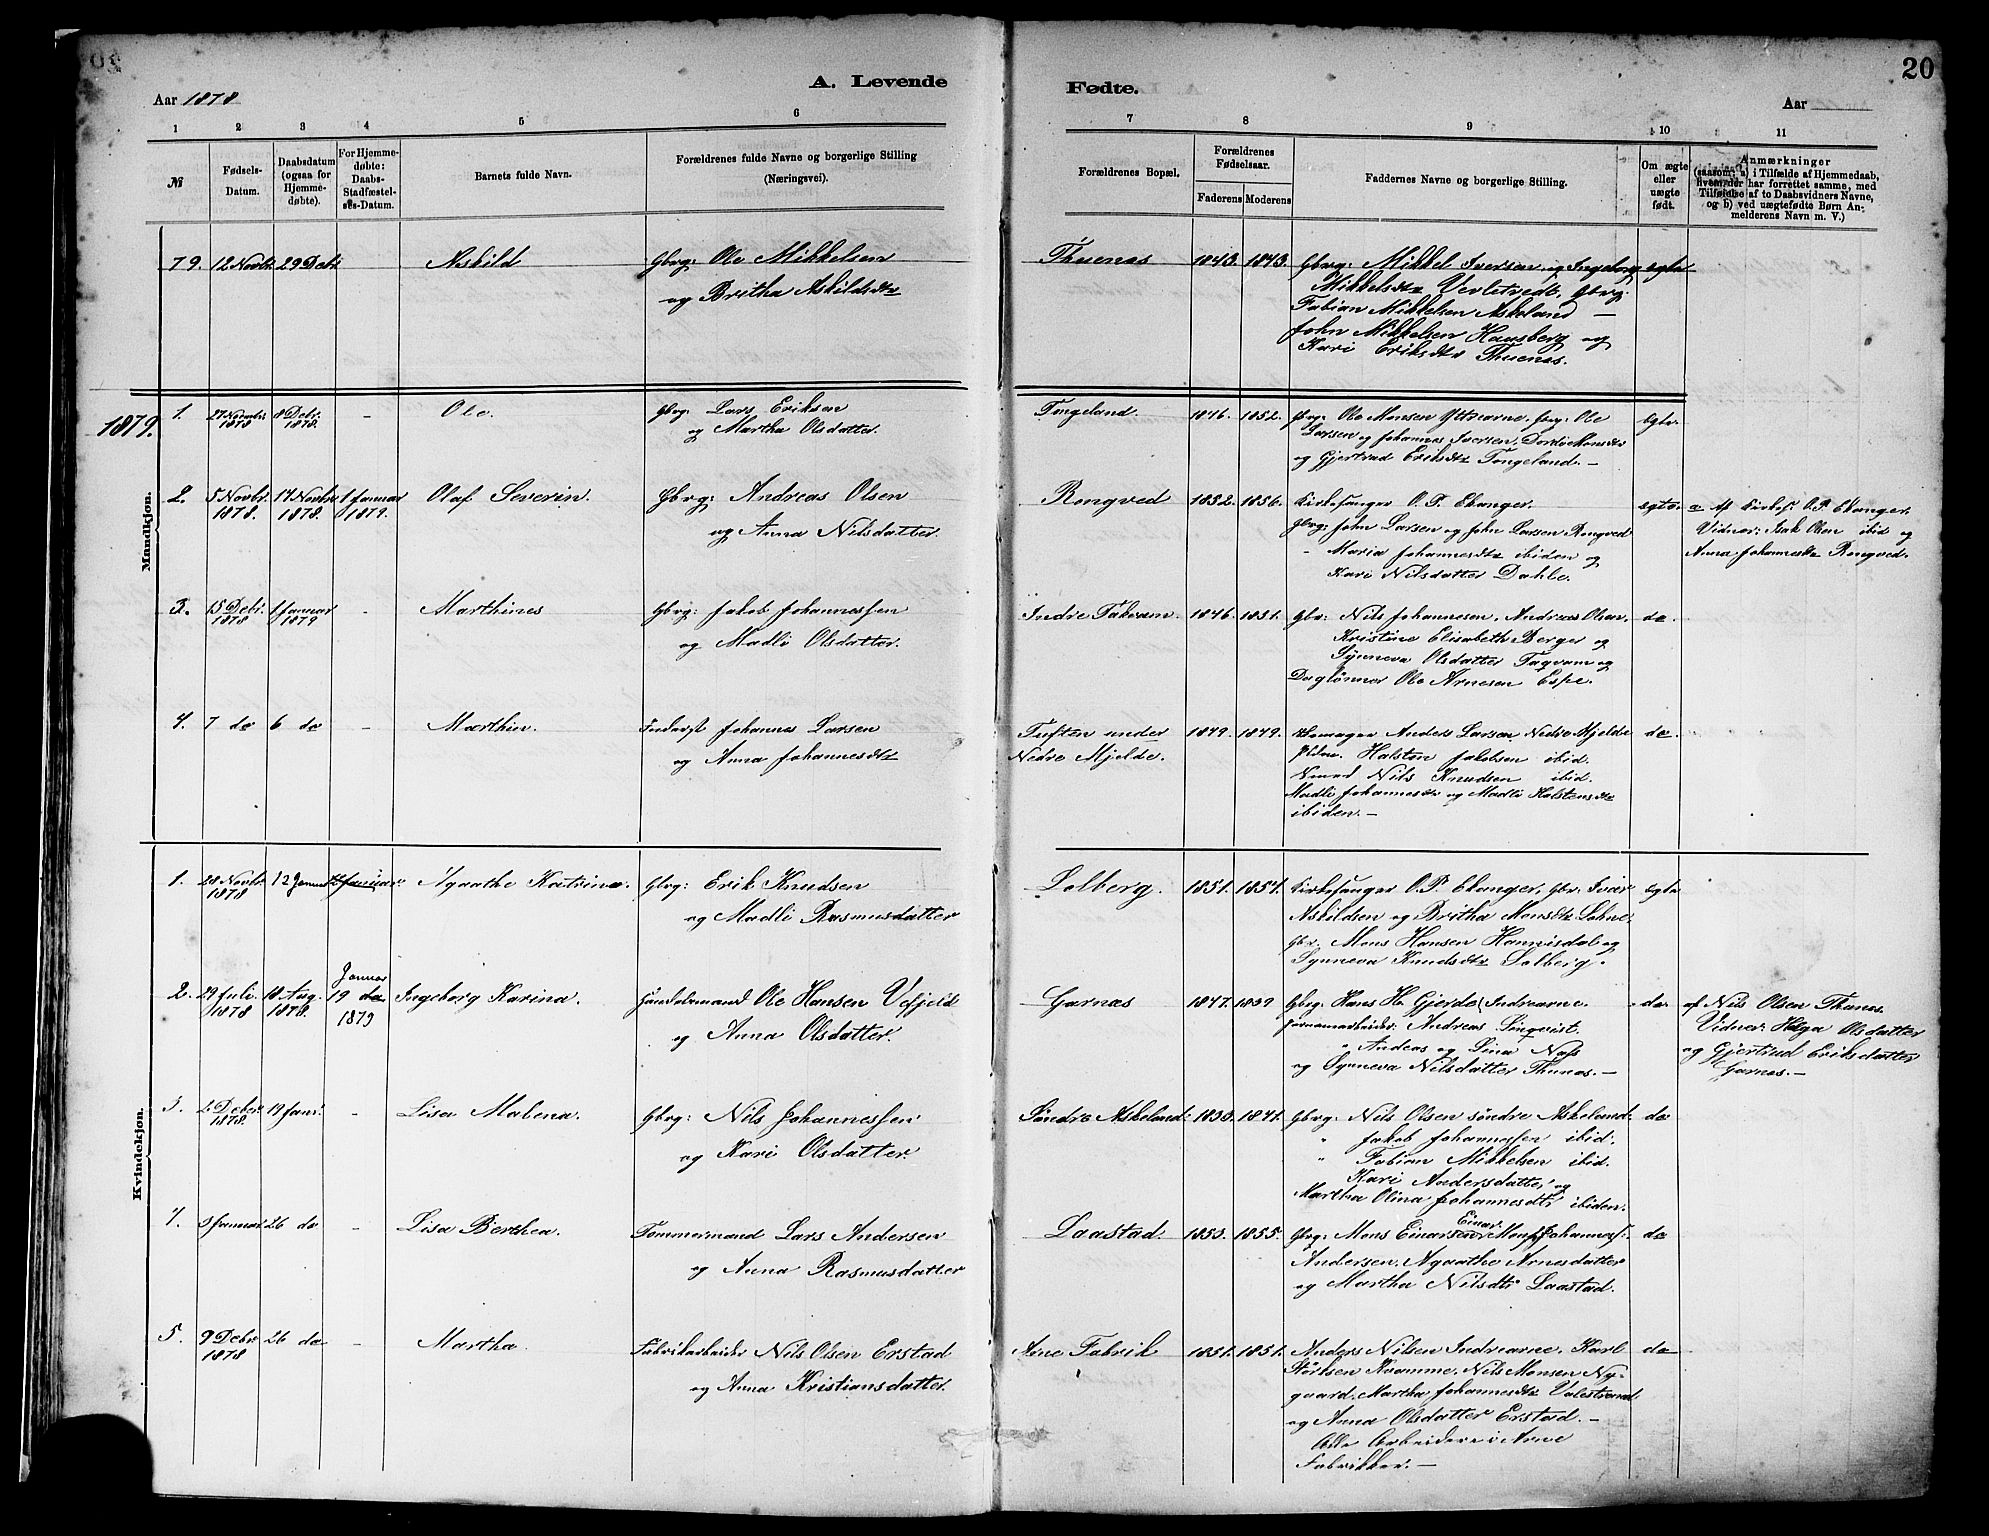 20
A. Levende Fødte.
Aar 1878
Aar
1 2 3 4 5 6 7 8 9 10 11
№
Fødsels-Datum.
Daabsdatum (ogsaa for Hjemmedøbte).
For Hjemmedøbte: Daabs-Stadfæstelses-Datum.
Barnets fulde Navn.
Forældrenes fulde Navne og borgerlige Stilling (Næringsvei).
Forældrenes Bopæl.
Forældrenes Fødselsaar.
Faderens Moderens
Faddernes Navne og borgerlige Stilling.
Om ægte eller uægte født.
Anmærkninger
(saasom: a) i Tilfælde af Hjemmedaab, hvem der har forrettet samme, med Tilføielse af to Daabsvidners Navne, og b) ved uægtefødte Børn Anmelderens Navn m. V.)
79. 12 Novbr 29 Debr Askild Gbrg: Ole Mikkelsen
og Britha Askildsdtr
Thuenæs 1843. 1843. Gbrg: Mikkel Iversen og Ingeborg egte
Mikkelsdtr Verletvedt, Gbrg:
Fabian Mikkelsen Askeland —
John Mikkelsen Haasberg og
Kari Eriksdtr Thuenæs.
1879.
Mandkjøn.
1. 27 Novbr 1878 8 Debr. 1878. - Ole. Gbrg: Lars Eriksen
og Martha Olsdatter.
Tongeland. 1846. 1852. Gbrg: Ole Monsen Ytrearne, Gbrg: Ole egte.
Larsen og Johannes Iversen, Dordi Monsdtr
og Gjertrud Eriksdtr Tongeland. —
2. 5 Novbr. 1878. 17 Novbr 1878. 1 Januar 1879. Olaf Severin. Gbrg: Andreas Olsen
og Anna Nilsdatter.
Ringved 1852. 1856. Kirkesanger O. P. Ekanger. egte.
Gbrg: John Larsen og John Larsen Ringved
" Maria Johannesdtr ibiden og
Kari Nilsdatter Dahle.
a Af Kirkes. O. P. Ekanger.
Vidner: Isak Olsen ibid og
Anna Johannesdtr Ringved.
3. 15 Debr. 1878 1 Januar 1879 - Marthines Gbrg: Jakob Johannessen
og Madli Olsdatter.
Indre Takvam. 1846. 1851. Gbr: Nils Johannesen, Andreas Olsen, do.
Kristine Elisabeth Berger og
Synneva Olsdatter Taqvam og
Daglønner Ole Arnesen Espe.
4. 7 do 6 do - Marthin. Inderst Johannes Larsen
og Anna Johannesdtr
Tuften under
Nedre Mjelde.
1849. 1849. Anders Larsen Nedre Mjelde do.
Halsten Jakobsen ibid.
Nils Knudsen ibid.
Madli Johannesdtr og Madli Halstensdtr
ibiden. —
Kvindekjøn.
1. 28 Novbr. 1878 12 Januar Januar Agaathe Katrina. Gbrg: Erik Knudsen
og Madli Rasmusdatter
Solberg. 1851. 1854. Kirkesanger O. P. Ekanger, Gbr: Ivar egte
Askildsen og Britha Monsdtr Sohne,
Gbr. Mons Hansen Hannisdal og
Synneva Knudsdtr Solberg.
2. 29 Juli. 1878 18 Aug. 1878. Januar 19 do 1879 Ingeborg Karina. Handelsmand Ole Hansen Vefjeld
og Anna Olsdatter.
Garnæs 1847. 1839 Gbrg: Hans H. Gjerde (Indrearne. do.
Jernarbeider: Andreas Linqvist.
" Andeas og Lina Næs
og Synneva Nilsdatter Thunes. —
af Nils Olsen Thunes.
Vidner: Helga Olsdatter
og Gjertrud Eriksdatter
Garnæs. —
3. 2 Debr. 1878. 19 Janr. - Lisa Malena. Gbrg: Nils Johannessen
og Kari Olsdatter.
Søndre Askeland. 1835. 1841. Gbrg: Nils Olsen søndre Askeland. do
" Jakob Johannessen ibid.
" Fabian Mikkelsen ibid.
Kari Andersdatter, og
Martha Olina Johannesdtr ibiden.
4. 3 Januar 26 do - Lisa Berthea. Tømmermand Lars Andersen
og Anna Rasmusdatter
Laastad. 1853. 1855. Gbrg: Mons Einarsen, Einar Mons Johanness. do
Andersen, Agaathe Arnesdatter
og Martha Nilsdtr Laastad.
5. 9 Debr. 1878 26 do - Martha. Fabrikarbeider Nils Olsen Erstad
og Anna Kristiansdatter.
Arne Fabrik 1851. 1851. Anders Nilsen Indrearne, Karl do
Størksen Kvamme, Nils Monsen Ny-
gaard, Martha Johannesdtr Valestrand
og Anna Olsdatter Erstad. —
Alle Arbeidere i Arne
Fabrikker. —